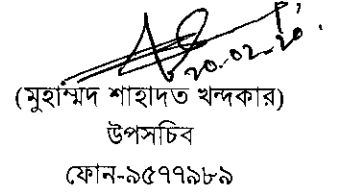 ২০.০২.২০
(মুহাম্মদ শাহাদত খন্দকার)
উপসচিব
ফোন-৯৫৭৭৯৮৯